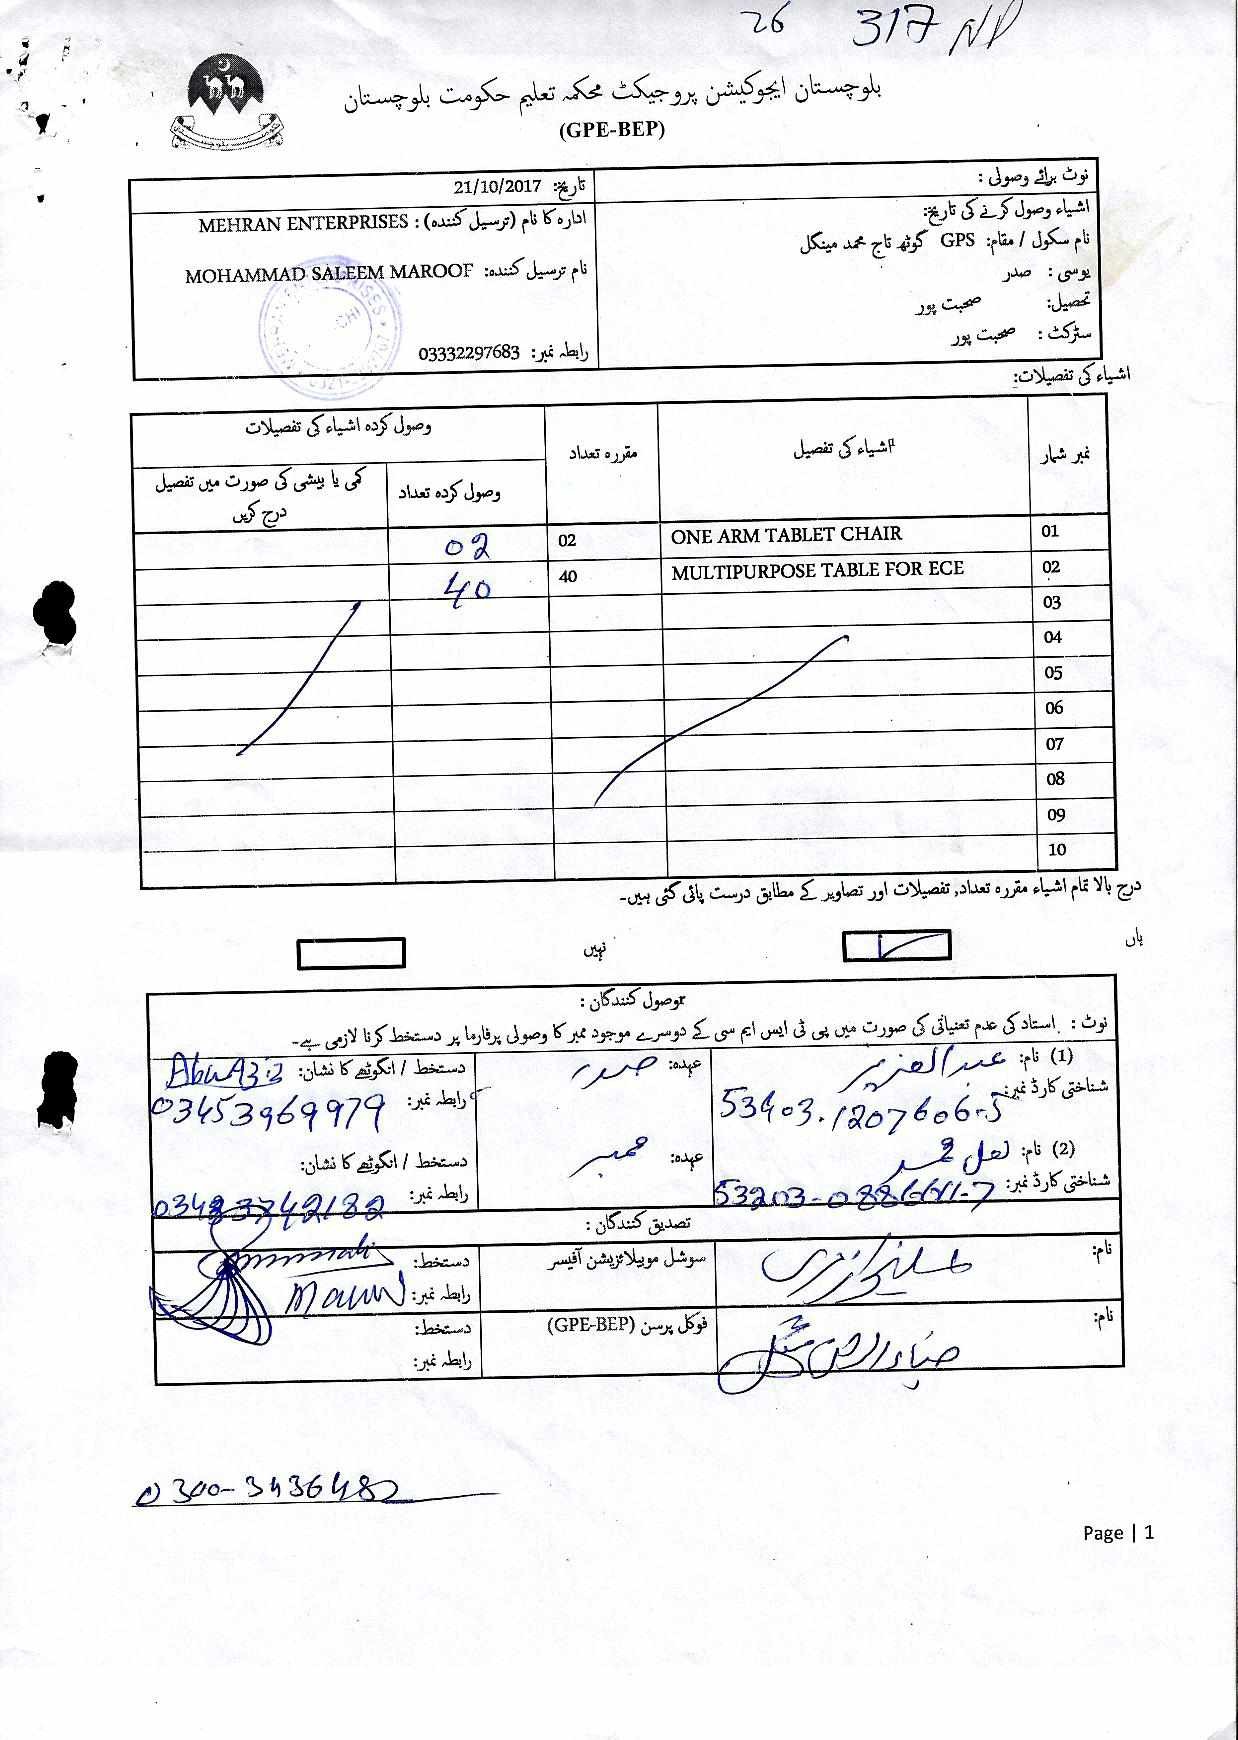 26 317 NP
بلوچستان ایجوکیشن پروجیکٹ محکمہ تعلیم حکومت بلوچستان
(GPE-BEP)
نوٹ برائے وصولی :
اشیاء وصول کرنے کی تاریخ:
نام سکول / مقام: GPS گوٹھ تاج محمد مینگل
یوسی : صدر
تحصیل: صحبت پور
سٹرکٹ : صحبت پور
تاریخ: 21/10/2017
ادارہ کا نام (ترسیل کنندہ) : MEHRAN ENTERPRISES
نام ترسیل کنندہ: MOHAMMAD SALEEM MAROOF
رابطہ نمبر: 03332297683
اشیاء کی تفصیلات:
نمبر شمار اشیاء کی تفصیل مقررہ تعداد وصول کردہ اشیاء کی تفصیلات
وصول کردہ تعداد کمی یا بیشی کی صورت میں تفصیل درج کریں
01 ONE ARM TABLET CHAIR 02 02
02 MULTIPURPOSE TABLE FOR ECE 40 40
03
04
05
06
07
08
09
10
درج بالا تمام اشیاء مقررہ تعداد, تفصیلات اور تصاویر کے مطابق درست پائی گئی ہیں۔
ہاں نہیں
وصول کنندگان :
نوٹ : استاد کی عدم تعیناتی کی صورت میں پی ٹی ایس ایم سی کے دوسرے موجود ممبر کا وصولی پرفارما پر دستخط کرنا لازمی ہے۔
(1) نام: عبدالعزیز عہدہ: صدر دستخط / انگوٹھے کا نشان:
شناختی کارڈ نمبر: 53403-1207606-5 رابطہ نمبر: 03453969979
(2) نام: لعل محمد عہدہ: ممبر دستخط / انگوٹھے کا نشان:
شناختی کارڈ نمبر: رابطہ نمبر:
تصدیق کنندگان :
نام: سوشل موبیلائزیشن آفیسر دستخط:
رابطہ نمبر:
نام: فوکل پرسن (GPE-BEP) دستخط:
رابطہ نمبر:
0300-3436482
Page | 1